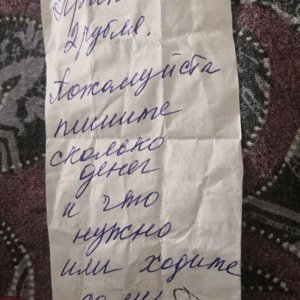 2 рубля.
Пожалуйста
пишите
сколько
денег
и что
нужно
или ходите